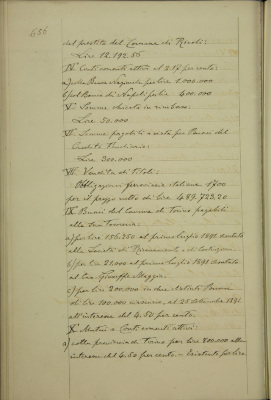 656
del prestito del Comune di Rivoli:
Lire 12.192.55
IV. Conti correnti attivi al 2.17 per cento:
a) colla Banca Nazionale per lire 1.000.000
b) pol Banco di Napoli per lire 400.000
V. Somme chieste in rimborso:
Lire 50.000
VI. Somme pagabili a vista per Buoni del
Credito Fondiario:
Lire 300.000
VII. Vendita di titoli:
Obbligazioni ferroviarie italiane 1700
per il prezzo netto di lire 489.723,20
IX. Buoni del Comune di Torino pagabili
alla sua Tesoreria:
a) per lire 156.250 al primo luglio 1891
alla Società di
b) per lire 21.000 al primo luglio 1891
al Cav. Giuseppe Maggia,
c) per lire 200.000 in due
di lire 100.000 ciascuno, al 25 settembre 1891
all'interesse del 4.50 per cento.
X. Mutui e Conti correnti attivi:
a) colla provincia di Torino per lire 800.000 all'
interesse del 4.50 per cento - per lire